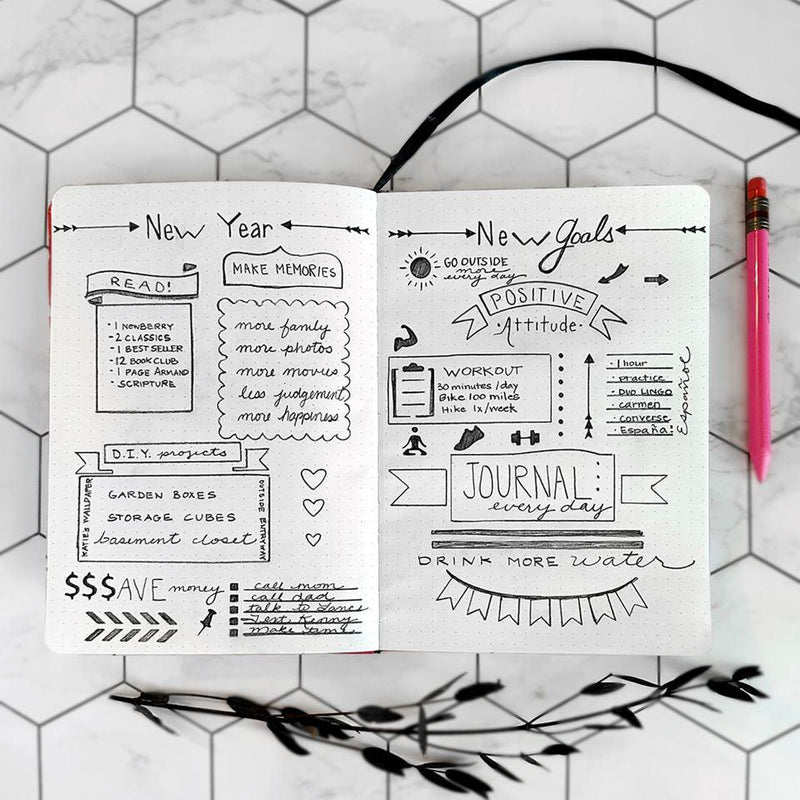 New Year
READ!
- 1 NEWBERRY
- 2 CLASSICS
- 1 BEST SELLER
- 12 BOOK CLUB
- 1 PAGE ARMAND
- SCRIPTURE
MAKE MEMORIES
more family
more photos
more movies
less judgement
more happiness
D.I.Y. projects
KATIE'S WALLPAPER
GARDEN BOXES
STORAGE CUBES
basement closet
OUTSIDE ENTRYWAY
$$$AVE money
call mom
call dad
talk to
Text Kenny
Make time
New Goals
GO OUTSIDE
more
every day
POSITIVE
Attitude
WORKOUT
30 minutes /day
Bike 100 miles
Hike 1x/week
- 1 hour
- practice
- DUO LINGO
- carmen
- converse
- España!
Español
JOURNAL
every day
DRINK MORE water